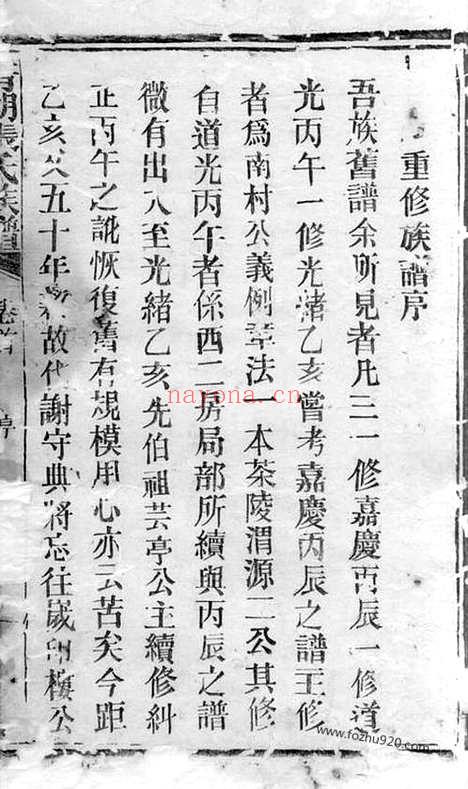 重修族譜序
吾族舊譜余所見者凡三一修嘉慶丙辰一修道
光丙午一修光緒乙亥嘗考嘉慶丙辰之譜主修
者爲南村公義例筆法一本茶陵渭源二公其修
自道光丙午者係西二房局部所續與丙辰之譜
微有出入至光緒乙亥先伯祖芸亭公主續修糾
正丙午之訛恢復舊有規模用心亦云苦矣今距
乙亥又五十年 故代謝守典將忘往歲 梅公
張氏族譜
nayona.cn
www.fozhu920.com